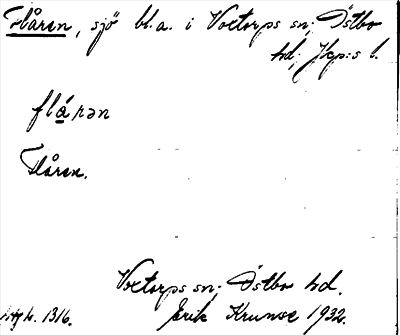 Flåren, sjö bl.a. i Voxtorps sn; Östbo
hd; Jkp:s l.
flárən
Flåren.
Voxtorps sn; Östbo hd.
Erik Krunse 1932.
1316.